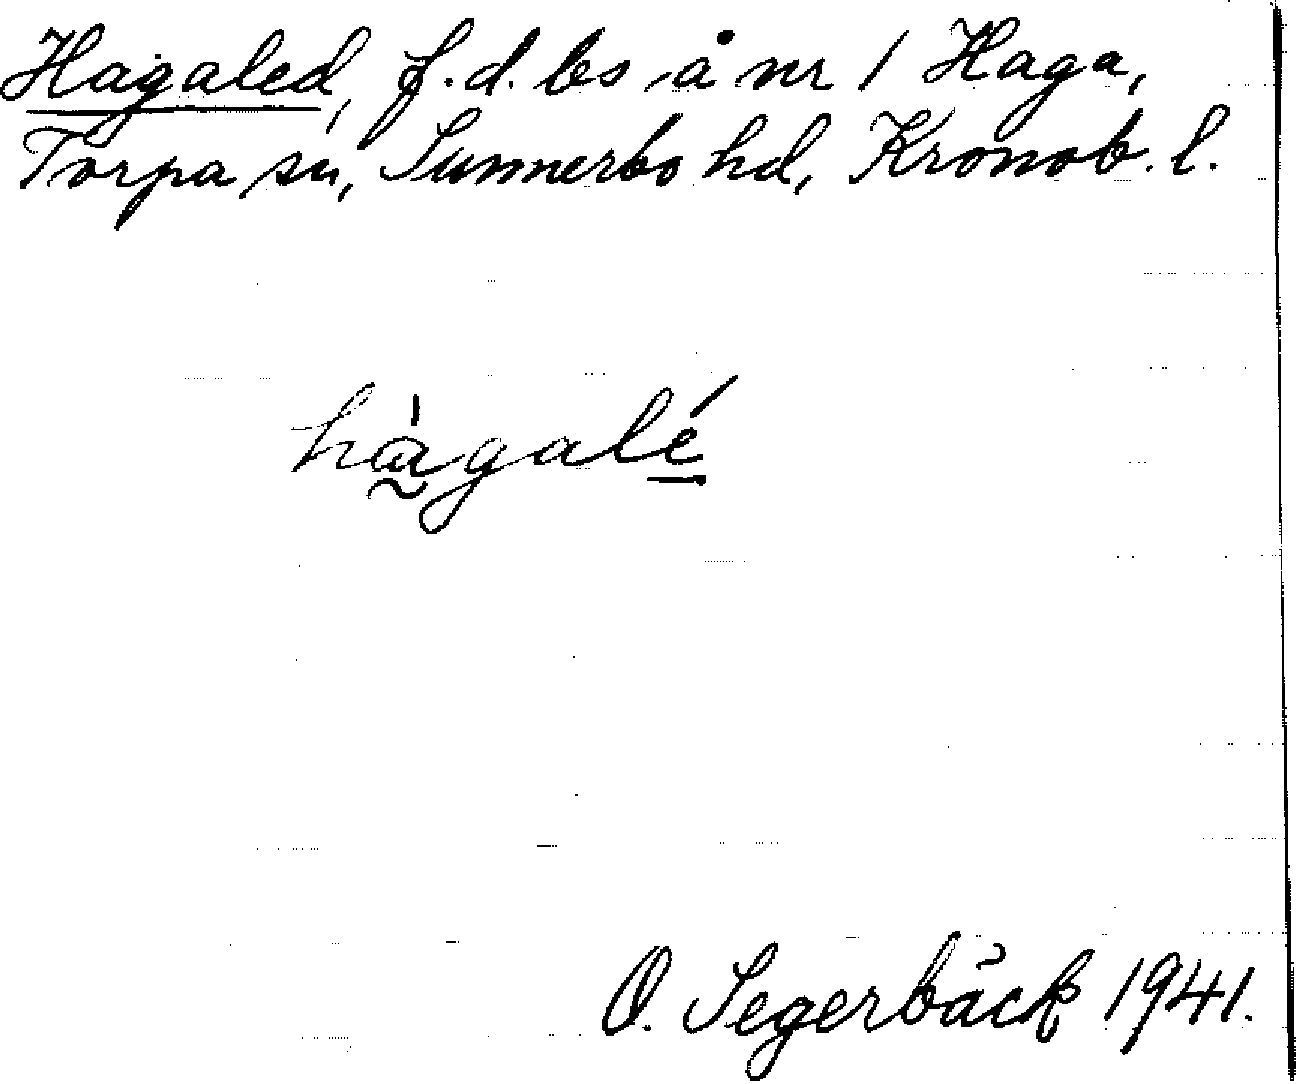 Hagaled, f.d. bs å nr 1 Haga,
Torpa sn, Sunnerbo hd, Kronob. l.
hàgalé
O. Segerbäck 1941.